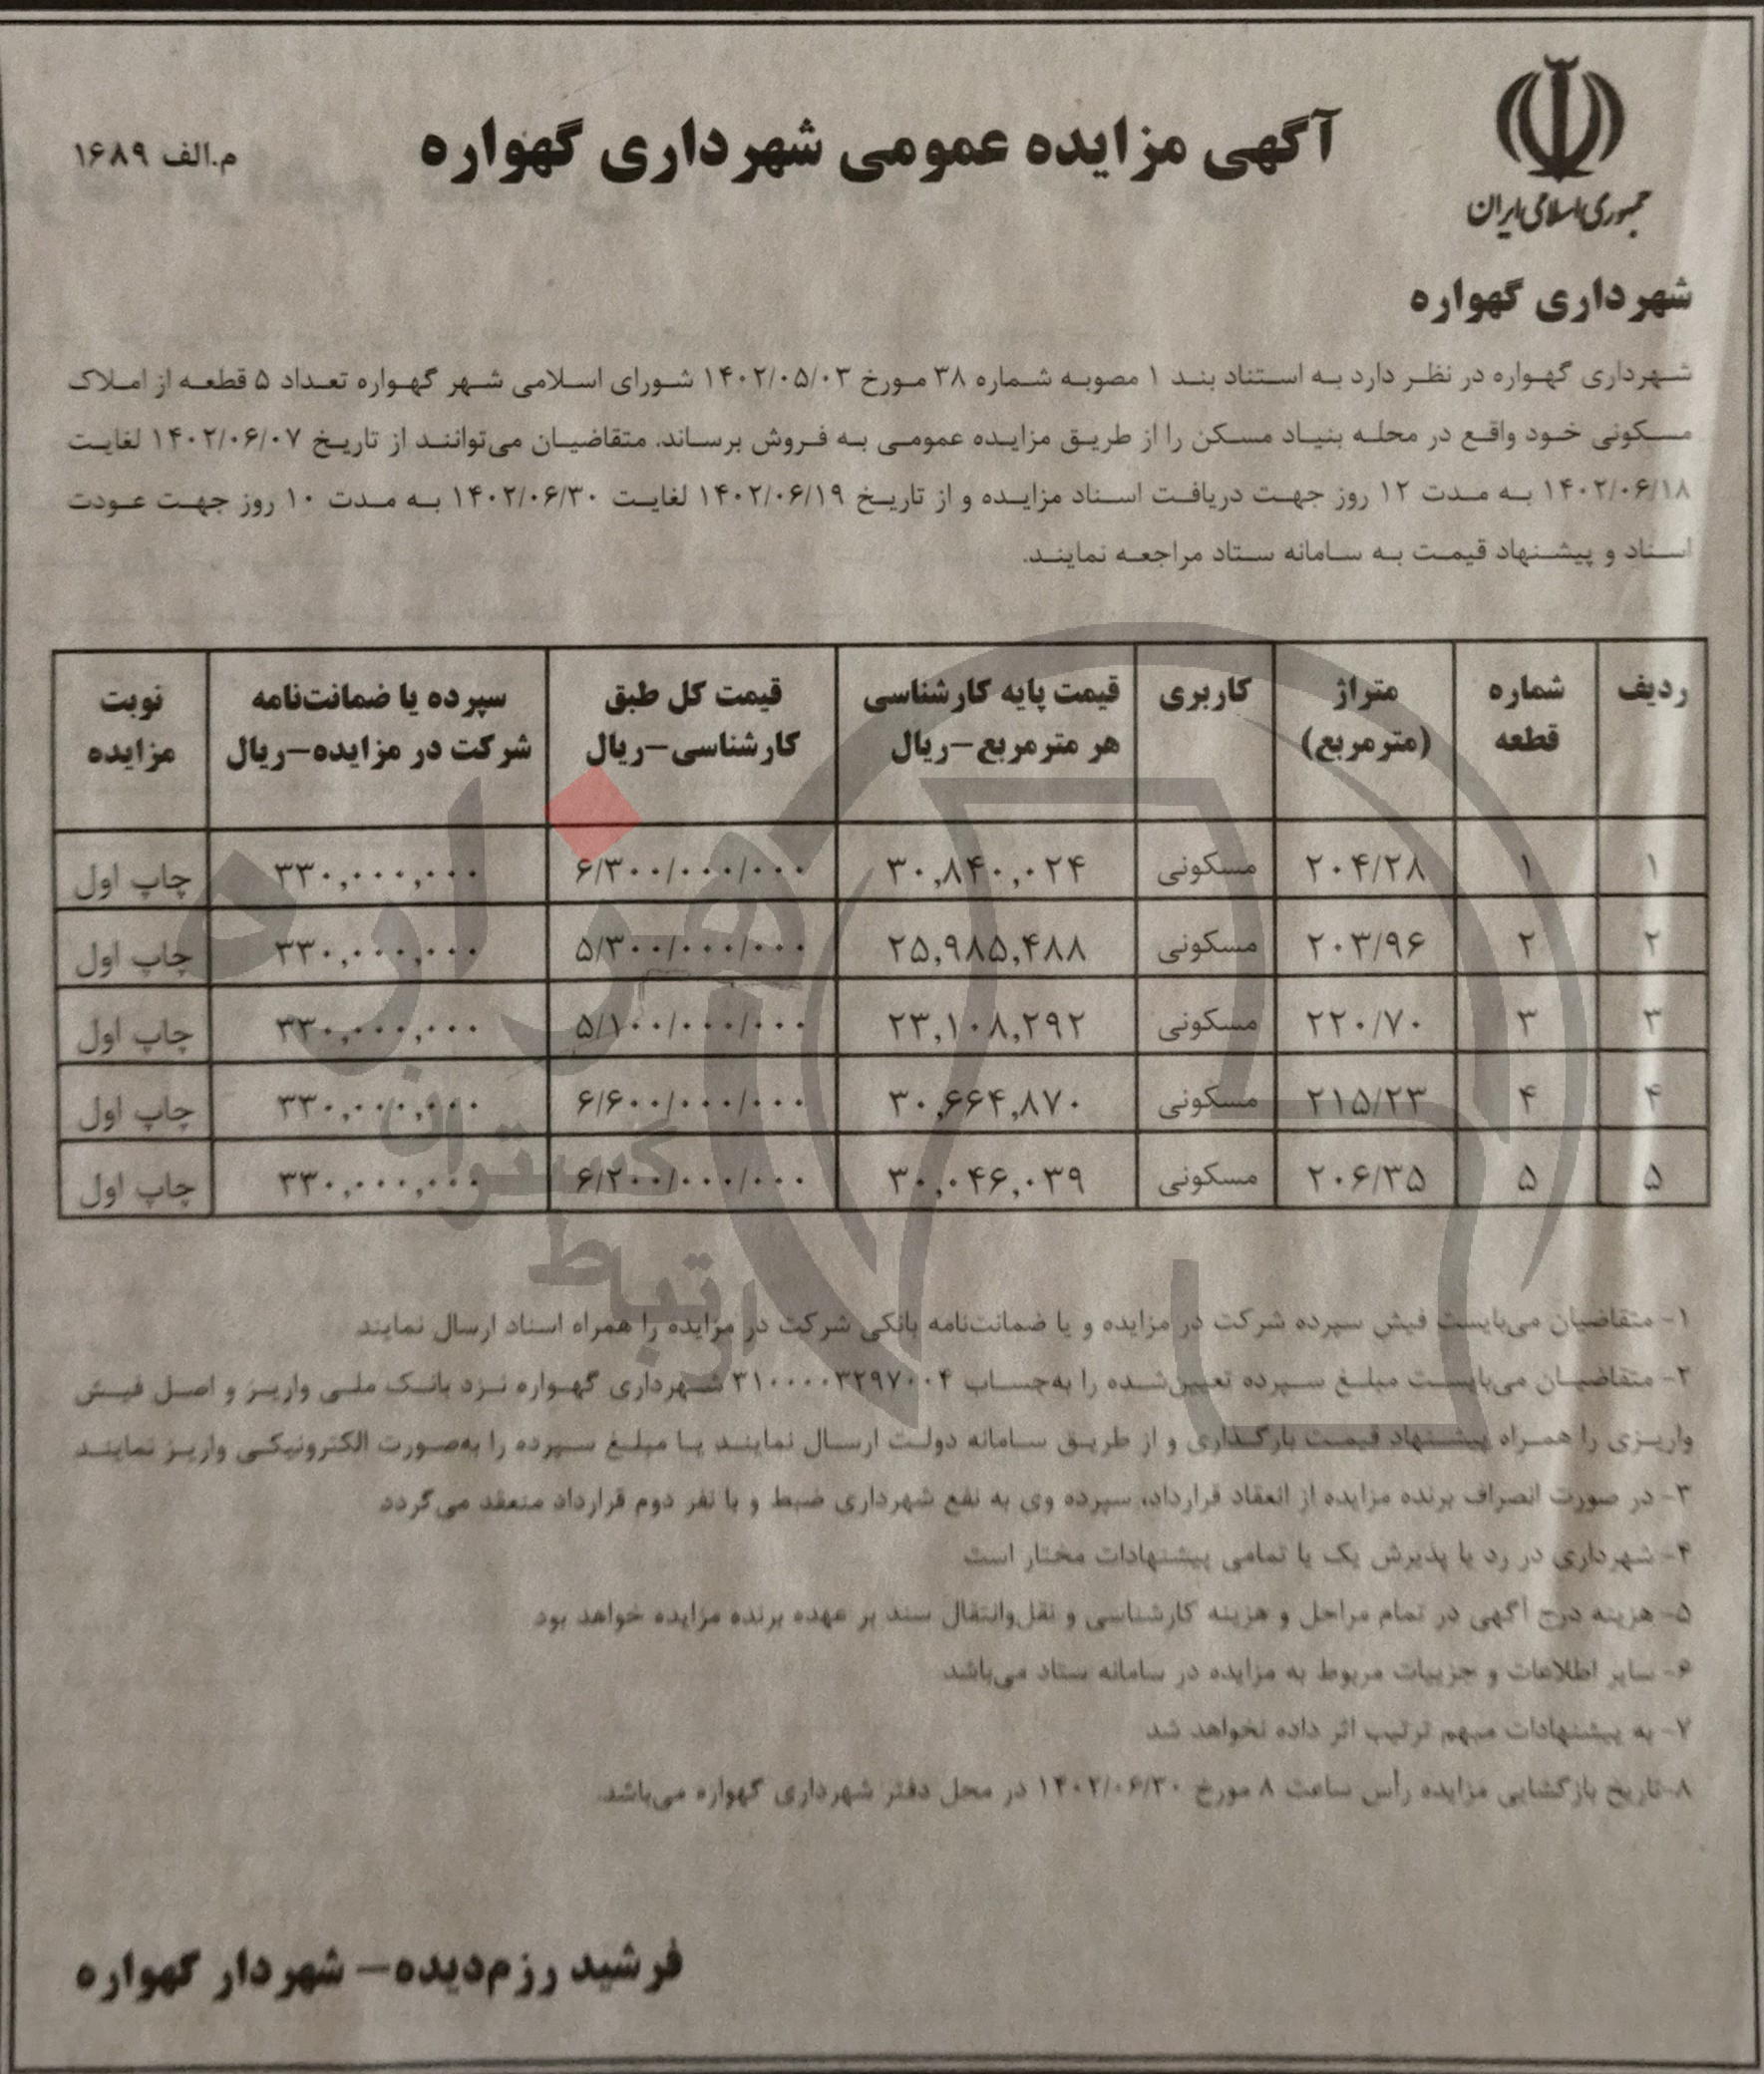 جمهوری اسلامی ایران
آگهی مزایده عمومی شهرداری گهواره
م.الف ۱۶۸۹
شهرداری گهواره
شهرداری گهواره در نظر دارد به استناد بند ۱ مصوبه شماره ۳۸ مورخ ۱۴۰۲/۰۵/۰۳ شورای اسلامی شهر گهواره تعداد ۵ قطعه از املاک
مسکونی خود واقع در محله بنیاد مسکن را از طریق مزایده عمومی به فروش برساند. متقاضیان می‌توانند از تاریخ ۱۴۰۲/۰۶/۰۷ لغایت
۱۴۰۲/۰۶/۱۸ به مدت ۱۲ روز جهت دریافت اسناد مزایده و از تاریخ ۱۴۰۲/۰۶/۱۹ لغایت ۱۴۰۲/۰۶/۳۰ به مدت ۱۰ روز جهت عودت
اسناد و پیشنهاد قیمت به سامانه ستاد مراجعه نمایند.
ردیف شماره قطعه متراژ (مترمربع) کاربری قیمت پایه کارشناسی هر مترمربع-ریال قیمت کل طبق کارشناسی-ریال سپرده یا ضمانت‌نامه شرکت در مزایده-ریال نوبت مزایده
۱ ۱ ۲۰۴/۲۸ مسکونی ۳۰,۸۴۰,۰۲۴ ۶/۳۰۰/۰۰۰/۰۰۰ ۳۳۰,۰۰۰,۰۰۰ چاپ اول
۲ ۲ ۲۰۳/۹۶ مسکونی ۲۵,۹۸۵,۴۸۸ ۵/۳۰۰/۰۰۰/۰۰۰ ۳۳۰,۰۰۰,۰۰۰ چاپ اول
۳ ۳ ۲۲۰/۷۰ مسکونی ۲۳,۱۰۸,۲۹۲ ۵/۱۰۰/۰۰۰/۰۰۰ ۳۳۰,۰۰۰,۰۰۰ چاپ اول
۴ ۴ ۲۱۵/۲۳ مسکونی ۳۰,۶۶۴,۸۷۰ ۶/۶۰۰/۰۰۰/۰۰۰ ۳۳۰,۰۰۰,۰۰۰ چاپ اول
۵ ۵ ۲۰۶/۳۵ مسکونی ۳۰,۰۴۶,۰۳۹ ۶/۲۰۰/۰۰۰/۰۰۰ ۳۳۰,۰۰۰,۰۰۰ چاپ اول
هزاره
ارتباط گستران
۱- متقاضیان می‌بایست فیش سپرده شرکت در مزایده و یا ضمانت‌نامه بانکی شرکت در مزایده را همراه اسناد ارسال نمایند
۲- متقاضیان می‌بایست مبلغ سپرده تعیین‌شده را به‌حساب ۳۱۰۰۰۰۳۲۹۷۰۰۴ شهرداری گهواره نزد بانک ملی واریز و اصل فیش
واریزی را همراه پیشنهاد قیمت بارگذاری و از طریق سامانه دولت ارسال نمایند یا مبلغ سپرده را به‌صورت الکترونیکی واریز نمایند
۳- در صورت انصراف برنده مزایده از انعقاد قرارداد، سپرده وی به نفع شهرداری ضبط و با نفر دوم قرارداد منعقد می‌گردد
۴- شهرداری در رد یا پذیرش یک یا تمامی پیشنهادات مختار است
۵- هزینه درج آگهی در تمام مراحل و هزینه کارشناسی و نقل‌وانتقال سند بر عهده برنده مزایده خواهد بود
۶- سایر اطلاعات و جزییات مربوط به مزایده در سامانه ستاد می‌باشد
۷- به پیشنهادات مبهم ترتیب اثر داده نخواهد شد
۸-تاریخ بازگشایی مزایده رأس ساعت ۸ مورخ ۱۴۰۲/۰۶/۳۰ در محل دفتر شهرداری گهواره می‌باشد.
فرشید رزم‌دیده- شهردار گهواره